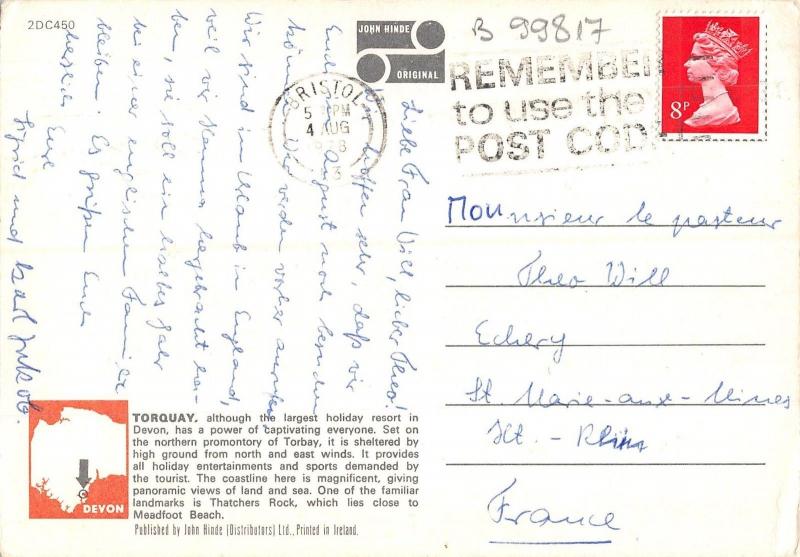 2DC450
JOHN HINDE
ORIGINAL
B 99817
BRISTOL
5 PM
4 AUG
REMEMBER
to use the
POST COD
8P
Liebe Frau Will, lieber Theo!
Wir hoffen sehr, daß wir
Euch im August noch besuchen
können. Wir werden vorher anrufen.
Wir sind im Urlaub in England,
weil wir Hanna hergebracht ha-
ben, sie soll ein halbes Jahr
bei einer englischen Familie
bleiben. Es grüßen Euch
herzlich Eure
Sigrid und Karl
Monsieur le pasteur
Theo Will
Echery
St. Marie-aux-Mines
Ht.-Rhin
France
TORQUAY, although the largest holiday resort in
Devon, has a power of captivating everyone. Set on
the northern promontory of Torbay, it is sheltered by
high ground from north and east winds. It provides
all holiday entertainments and sports demanded by
the tourist. The coastline here is magnificent, giving
panoramic views of land and sea. One of the familiar
landmarks is Thatchers Rock, which lies close to
Meadfoot Beach.
Published by John Hinde (Distributors) Ltd., Printed in Ireland.
DEVON